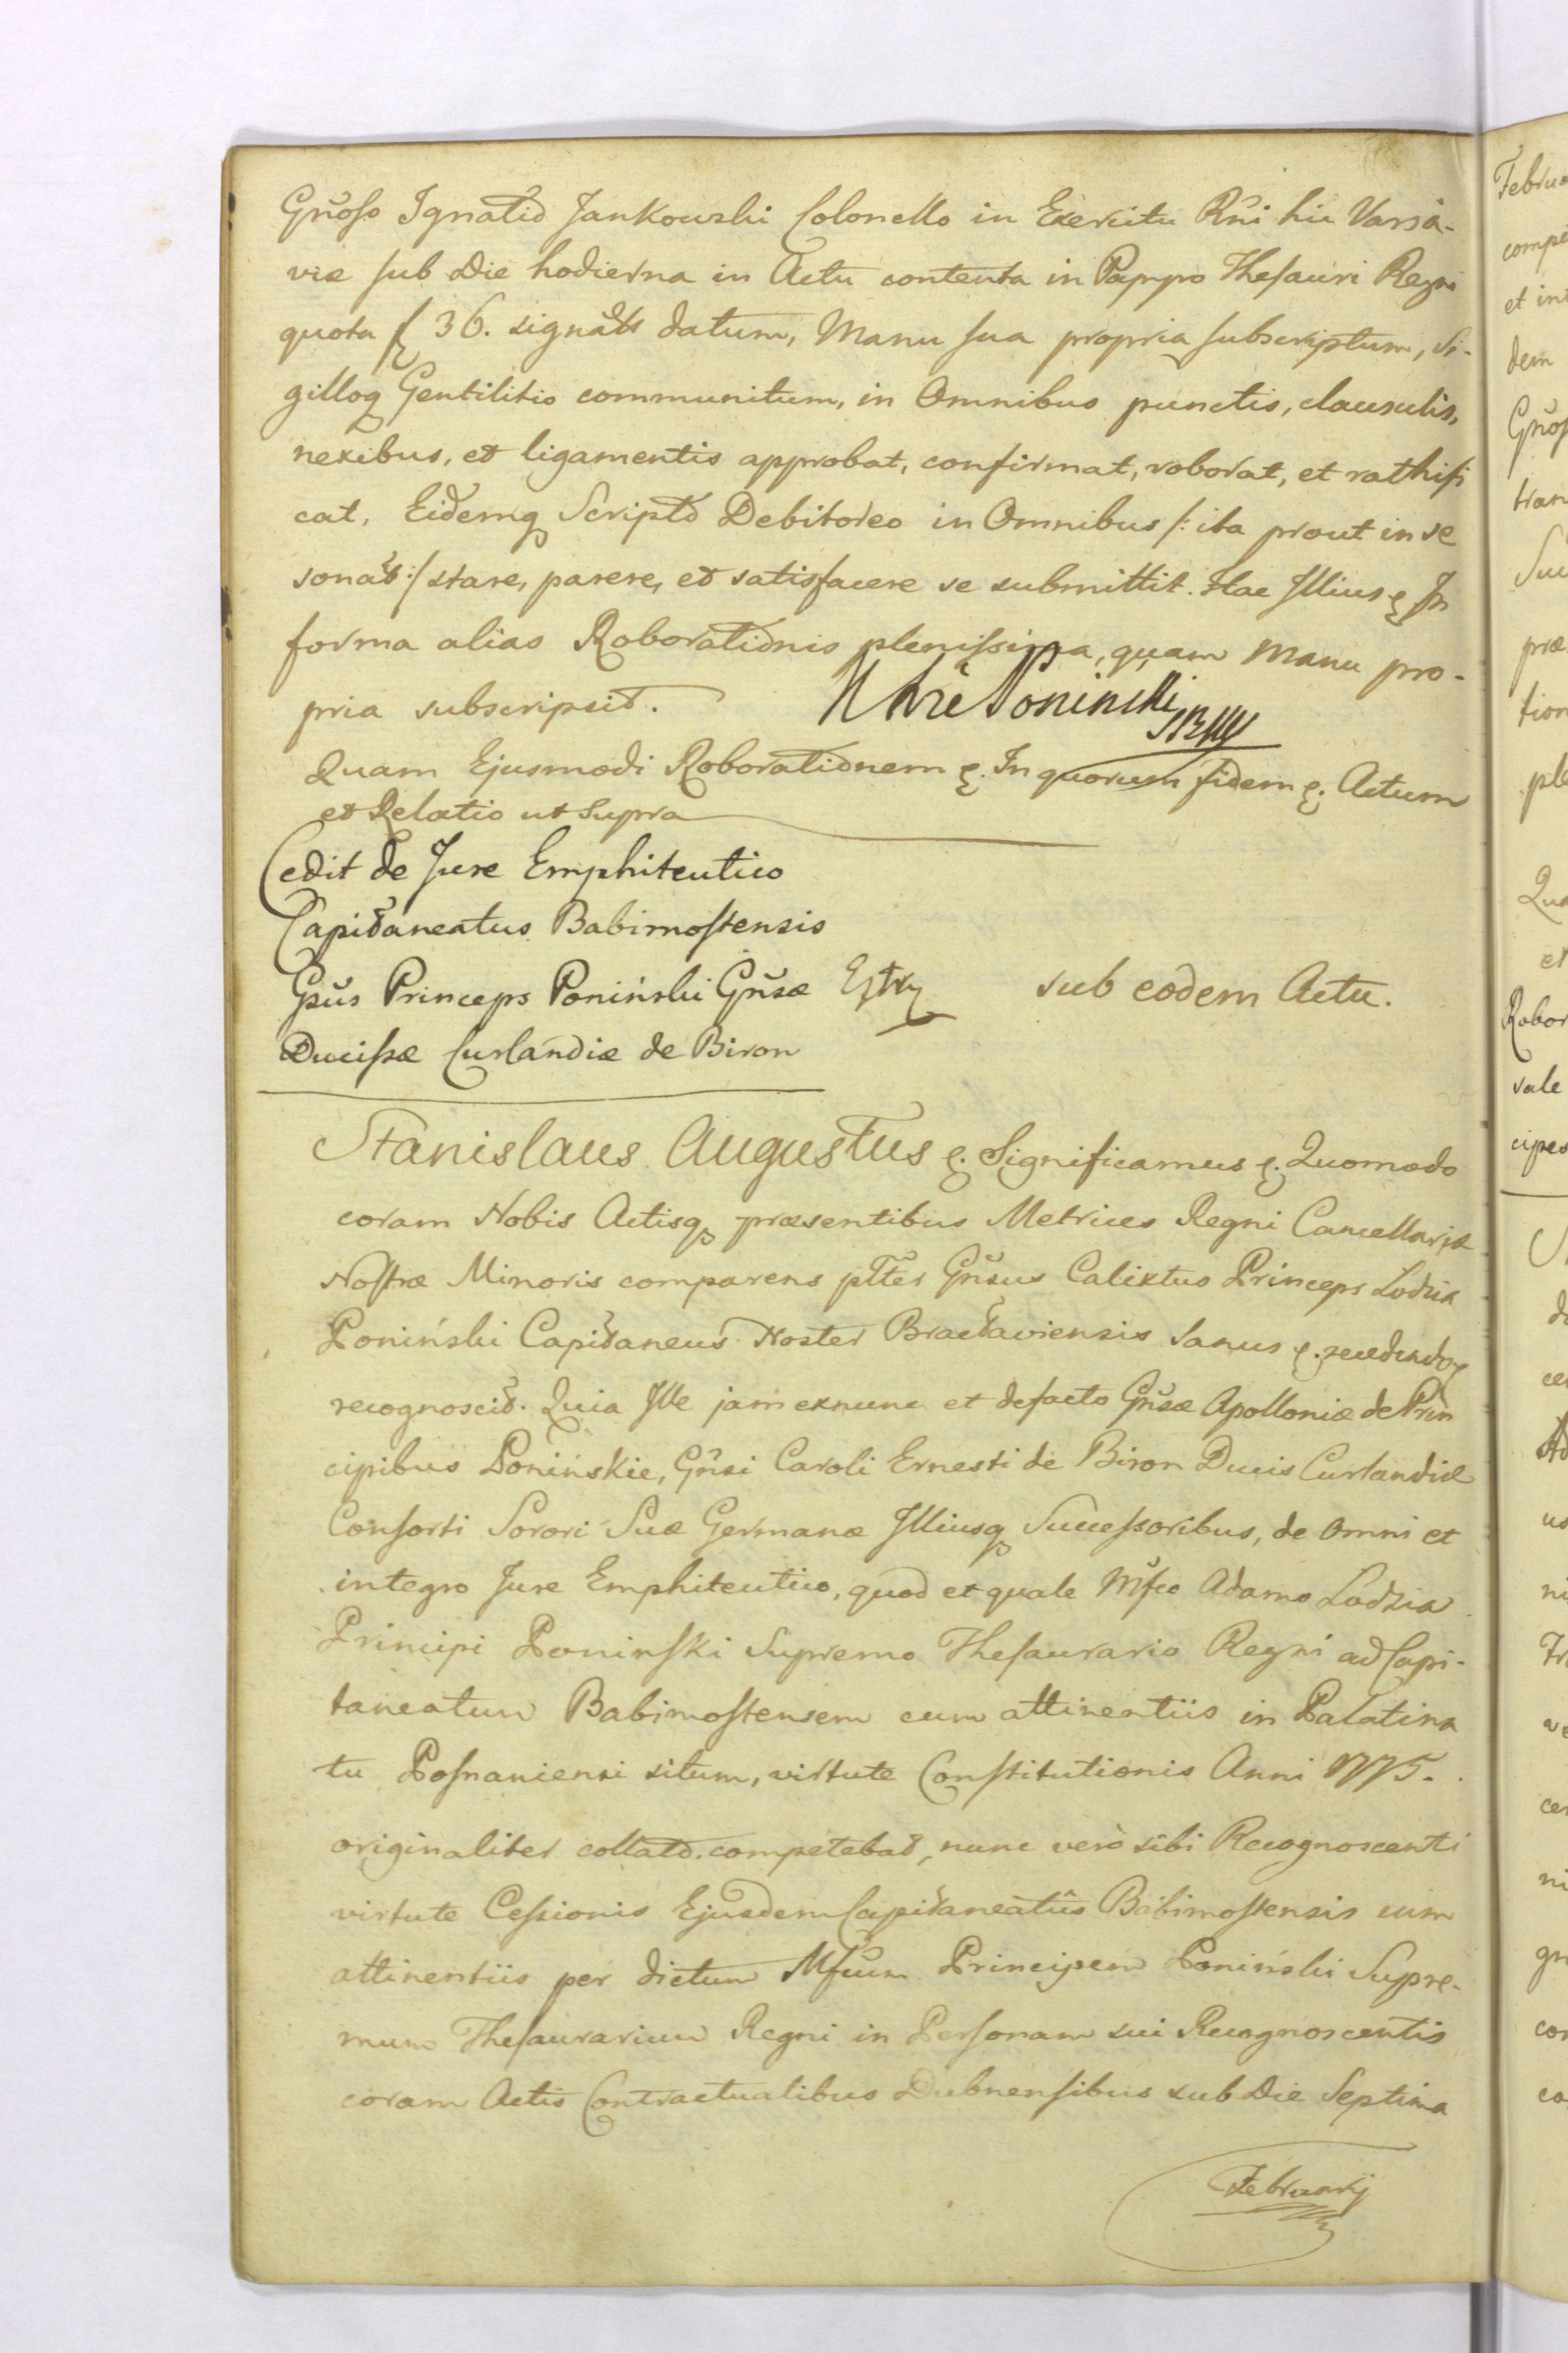 Gnoso Ignatio Jankowski Colonello in Exercitu Rni hic Varsa-
viæ sub Die hodierna in Actu contenta in Papyro Thesauri Regni
quota f 36. signatts datum, Manu sua propria subscriptum, si-
gilloq Gentilitio communitum, in Omnibus punctis, clausulis,
nexibus, et ligamentis approbat, confirmat, roborat, et rathifi
cat. Eidemq Scripto Debitoreo in Omnibus /: ita prout in se
sonat :/ stare, parere, et satisfacere se submittit. Hac Illius
forma alias Roborationis plenissima, quam Manu pro-
pria subscripsit.
Poninski
Quam Ejusmodi Roborationem &. In quorum fidem &. Actum
et Relatio ut Supra
Cedit de Jure Emphiteutico
Capitaneatus Babimostensis
Gsus Princeps Poniński Gnsæ
Ducissæ Curlandiæ de Biron
Extr
sub eodem Actu.
Stanislaus Augustus &. Significamus &. Quomodo
coram Nobis Actisq præsentibus Metrices Regni Cancellariæ
Nostræ Minoris comparens pltter Gnsus Calixtus Princeps Lodzia
Poniński Capitaneus Noster Bracłaviensis Sanus &. recedendoq
recognoscit. Quia Ille jam exnunc et defacto Gnsæ Apolloniæ de Prin
cipibus Ponińskie, Gnsi Caroli Ernesti de Biron Ducis Curlandiæ
Consorti Sorori Suæ Germanæ Illiusq Successoribus, de omni et
integro Jure Emphiteutico, quod et quale Mfco Adamo Lodzia
Principi Poninski Supremo Thesaurario Regni ad Capi-
taneatum Babimostensem cum attinentiis in Palatina
tu Posnaniensi situm, virtute Constitutionis Anni 1775.
originaliter collato. competebat, nunc verò sibi Recognoscenti
virtute Cessionis Ejusdem Capitaneatûs Babimostensis cum
attinentiis per dictum Mfcum Principem Poniński Supre-
mum Thesaurarium Regni in Personam sui Recognoscentis
coram Actis Contractualibus Dubnensibus sub Die Septima
Februarij